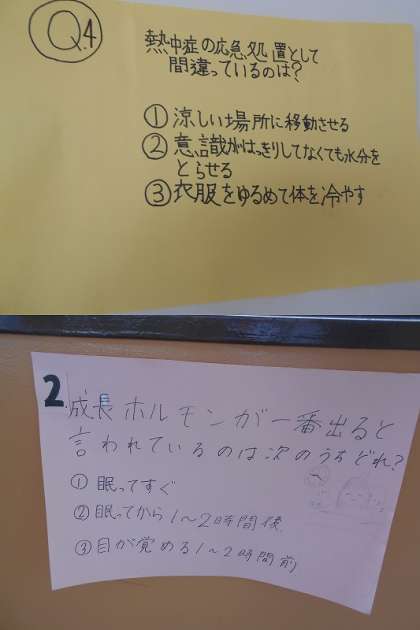 Q.4
熱中症の応急処置として
間違っているのは?
① 涼しい場所に移動させる
② 意識がはっきりしてなくても水分を
とらせる
③ 衣服をゆるめて体を冷やす
2
成長ホルモンが一番出ると
言われているのは次のうちどれ?
① 眠ってすぐ
② 眠ってから1〜2時間後
③ 目が覚める1〜2時間前